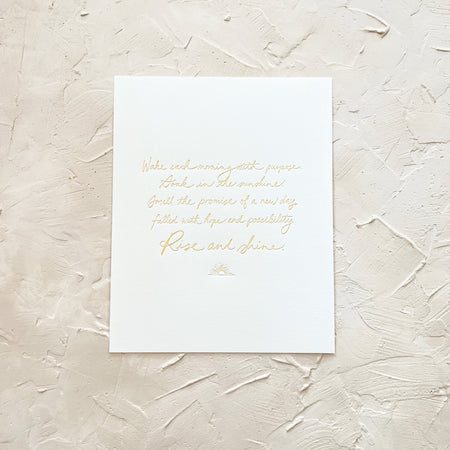 Wake each morning with purpose
Soak in the sunshine.
Smell the promise of a new day
filled with hope and possibility
Rise and shine.